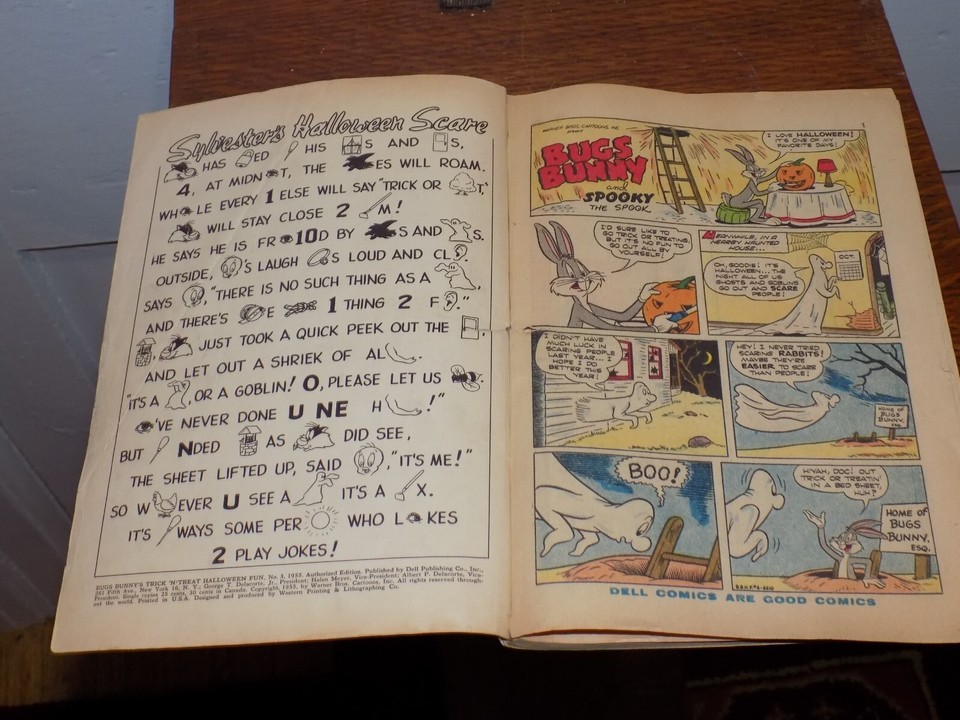 Sylvester's Halloween Scare
HAS ED HIS S AND S,
4, AT MIDN T, THE ES WILL ROAM.
WH LE EVERY 1 ELSE WILL SAY "TRICK OR T,"
WILL STAY CLOSE 2 M!
HE SAYS HE IS FR 10D BY S AND S.
OUTSIDE, 'S LAUGH S LOUD AND CL .
SAYS , "THERE IS NO SUCH THING AS A ,
AND THERE'S E 1 THING 2 F ."
JUST TOOK A QUICK PEEK OUT THE ,
AND LET OUT A SHRIEK OF AL .
"IT'S A , OR A GOBLIN! O, PLEASE LET US .
'VE NEVER DONE U NE H !"
BUT NDED AS DID SEE,
THE SHEET LIFTED UP, SAID , "IT'S ME!"
SO W EVER U SEE A IT'S A X.
IT'S WAYS SOME PER WHO L KES
2 PLAY JOKES!
BUGS BUNNY'S TRICK 'N' TREAT HALLOWEEN FUN, No. 3, 1955. Authorized Edition. Published by Dell Publishing Co., Inc.,
261 Fifth Ave., New York 16, N. Y.; George T. Delacorte, Jr., President; Helen Meyer, Vice-President; Albert P. Delacorte, Vice-
President. Single copies 25 cents, 30 cents in Canada. Copyright, 1955, by Warner Bros. Cartoons, Inc. All rights reserved through-
out the world. Printed in U.S.A. Designed and produced by Western Printing & Lithographing Co.
1
WARNER BROS. CARTOONS INC.
BUGS
BUNNY
and
SPOOKY
THE SPOOK
I LOVE HALLOWEEN!
IT'S ONE OF MY
FAVORITE DAYS!
I'D SURE LIKE TO
GO TRICK OR TREATING,
BUT IT'S NO FUN TO
GO OUT ALL BY
YOURSELF!
MEANWHILE, IN A
NEARBY HAUNTED
HOUSE...
OH, GOODIE! IT'S
HALLOWEEN... THE
NIGHT ALL OF US
GHOSTS AND GOBLINS
GO OUT AND SCARE
PEOPLE!
OCT.
I DIDN'T HAVE
MUCH LUCK IN
SCARING PEOPLE
LAST YEAR... I
HOPE I DO
BETTER THIS
YEAR!
HEY! I NEVER TRIED
SCARING RABBITS!
MAYBE THEY'RE
EASIER TO SCARE
THAN PEOPLE!
HOME OF
BUGS
BUNNY,
ESQ.
BOO!
HIYAH, DOC! OUT
TRICK OR TREATIN'
IN A BED SHEET,
HUH?
HOME OF
BUGS
BUNNY,
ESQ.
DELL COMICS ARE GOOD COMICS